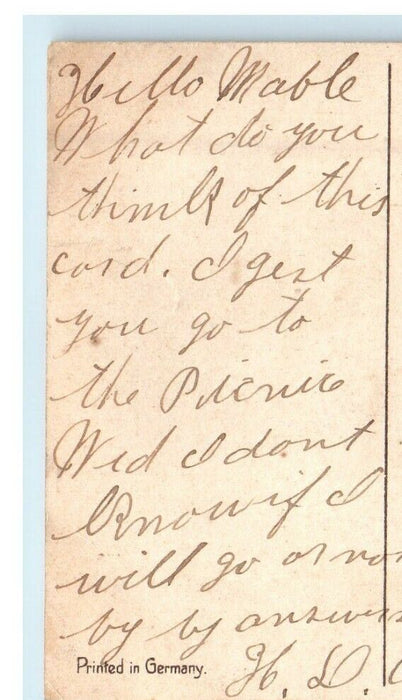 Hello Mable
What do you
think of this
card. I gest
you go to
the Picnic
Wed I dont
know if I
will go or not
by by answer
H. D.
Printed in Germany.